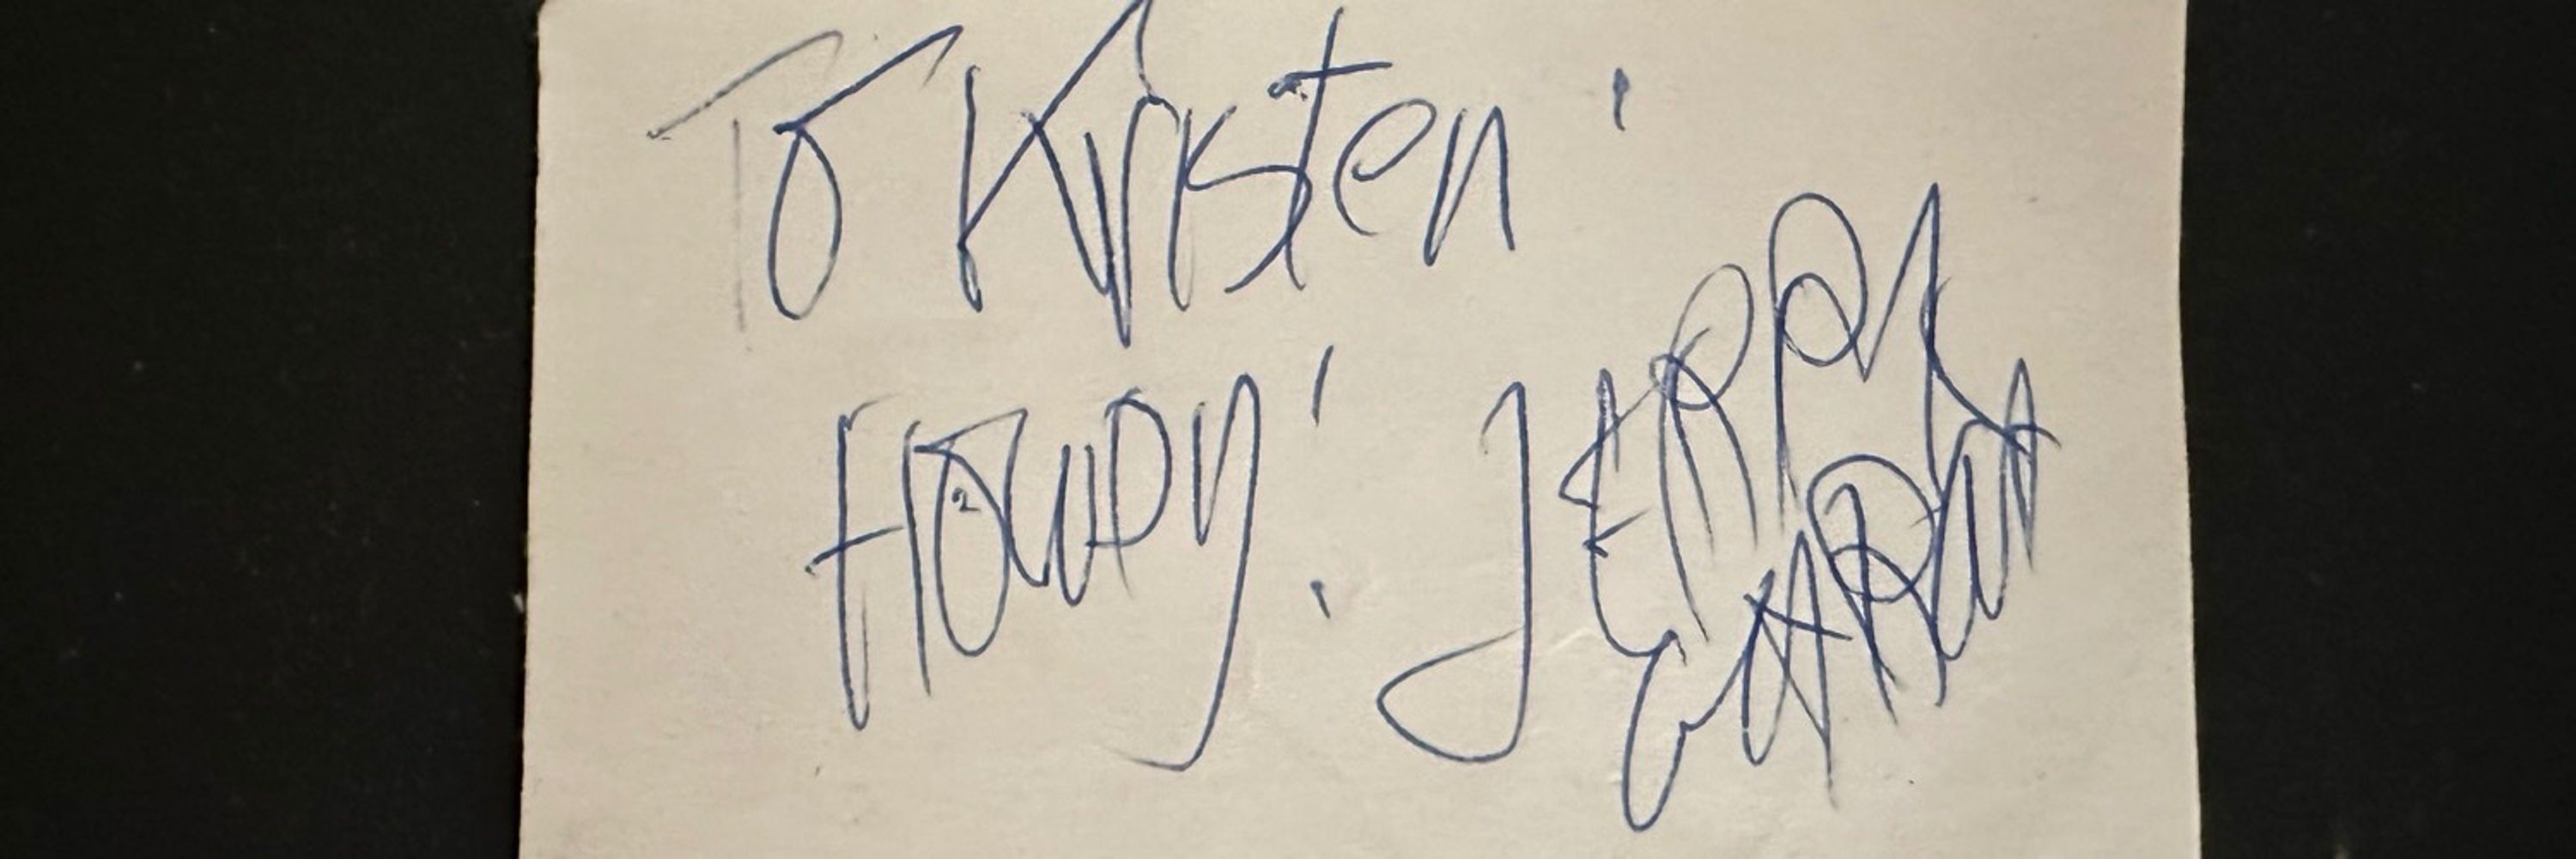 To Kirsten!
HOWDY! JERRY
GARCIA